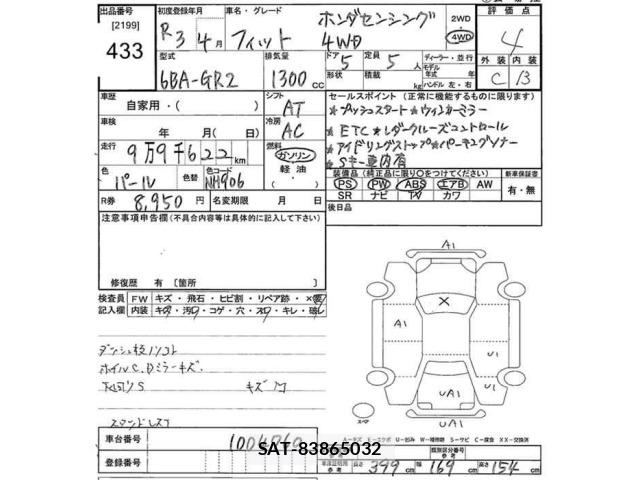 出品番号
[2199]
433
初度登録年月
R3年4月
車名・グレード
フィット
ホンダセンシング
4WD
2WD
4WD
評価点
4
外装 内装
C B
型式
6BA-GR2
排気量
1300 cc
ドア 5
形状
定員 5 人
積載 kg
ディーラー・並行
モデル
年式 年
ハンドル 左・右
車歴
自家用・( )
シフト
AT
セールスポイント (正常に機能するものに限ります)
★プッシュスタート★ウィンカーミラー
車検
年 月( 日)
冷房
AC
★ETC★レーダークルーズコントロール
★アイドリングストップ★パーキングソナー
走行
9万9千622 km
燃料
ガソリン
軽油
・
★Sキー車内有
色
パール
色替
色コード
NH906
装備品 (純正品に限り○をつけてください)
新車保証書
PS PW ABS エアB AW
有・無
SR ナビ TV カワ
R券 8,950 円
名変期限 月 日
後日品
注意事項申告欄 (不具合内容等は具体的に記入して下さい)
修復歴 有 [箇所 ]
検査員
記入欄
FW キズ・飛石・ヒビ割・リペア跡・×(要)
内装 キズ・汚れ・コゲ・穴・スレ・キレ・破レ
A1
A1
U1
UA1
A1
ホイルC,Dミラーキズ
下廻りS
スタッドレス
スペア
A-キズ U-凹み W-補修跡 S-サビ C-腐食 XX-交換済
車台番号
登録番号
SAT-83865032
類別区分番号
参考
車体証明用
参考
長さ 399 幅 169 高さ 154 cm